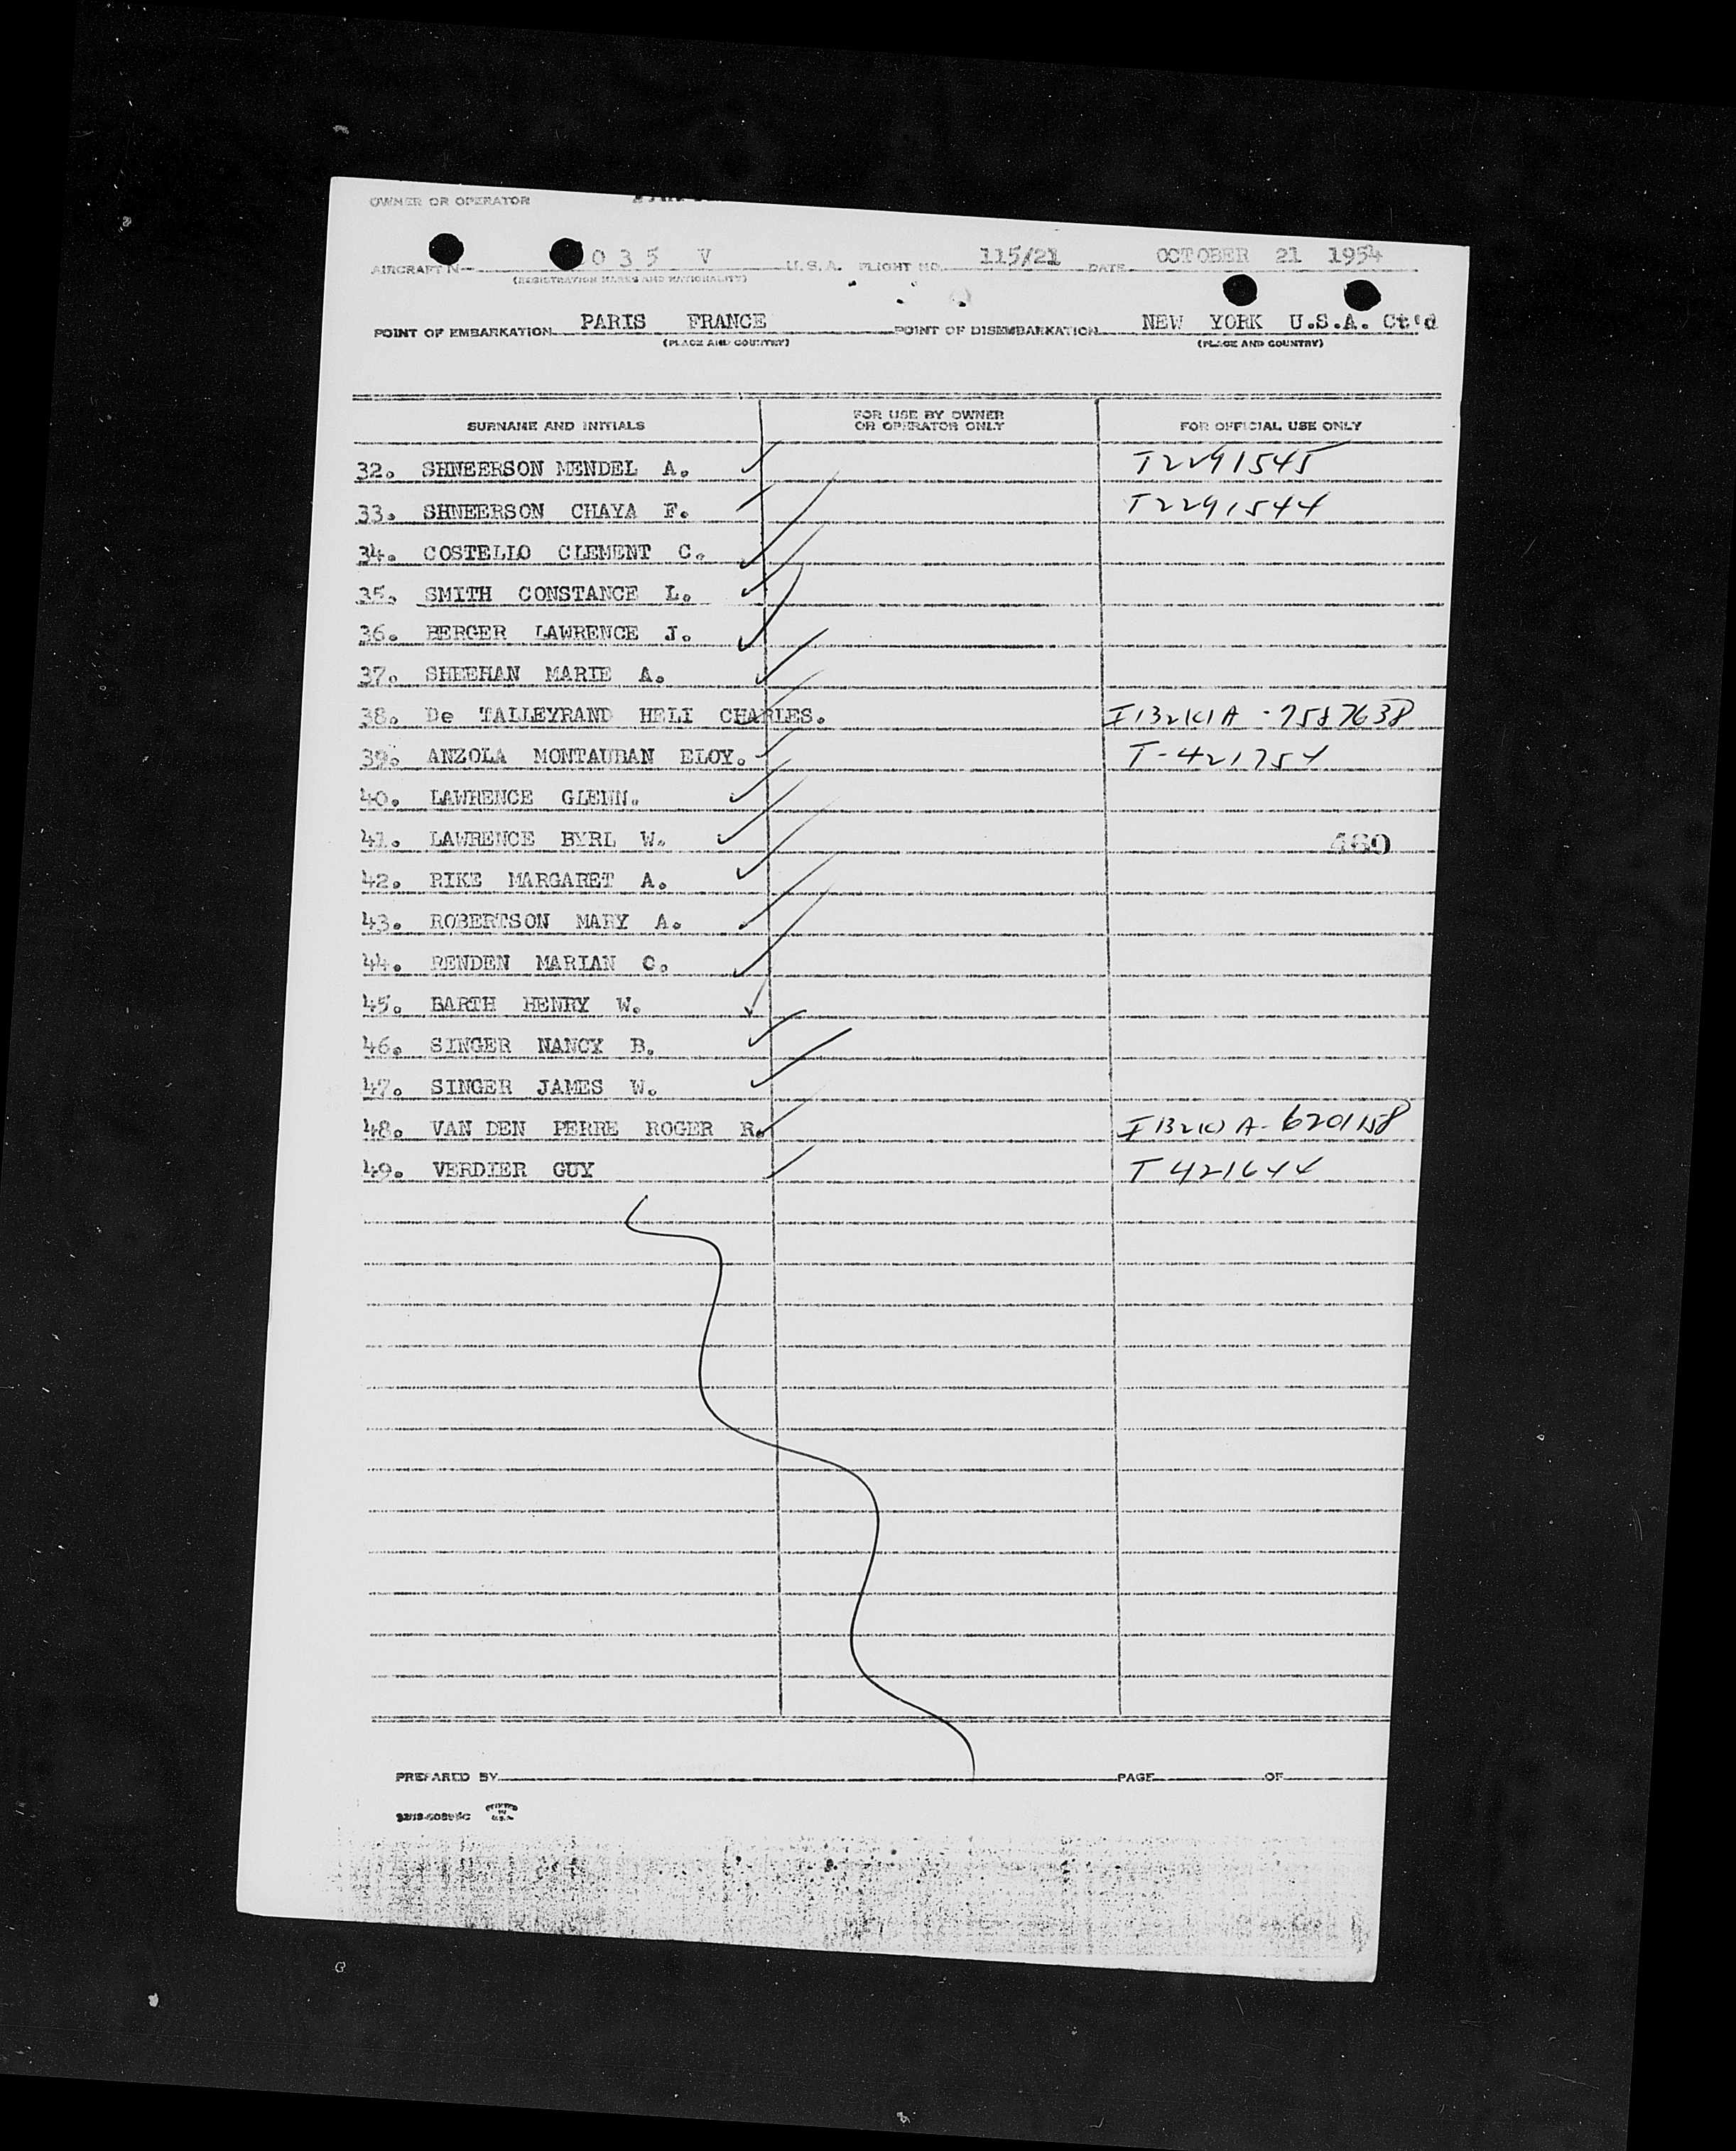 OWNER OR OPERATOR
AIRCRAFT N 035 V U.S.A. FLIGHT NO. 115/21 DATE OCTOBER 21 1954
(REGISTRATION MARKS AND NATIONALITY)
POINT OF EMBARKATION PARIS FRANCE POINT OF DISEMBARKATION NEW YORK U.S.A. Ct'd
(PLACE AND COUNTRY) (PLACE AND COUNTRY)
SURNAME AND INITIALS FOR USE BY OWNER OR OPERATOR ONLY FOR OFFICIAL USE ONLY
32. SHNEERSON MENDEL A. T2291545
33. SHNEERSON CHAYA F. T2291544
34. COSTELLO CLEMENT C.
35. SMITH CONSTANCE L.
36. BERGER LAWRENCE J.
37. SHEEHAN MARIE A.
38. De TALLEYRAND HELI CHARLES. 7587638
39. ANZOLA MONTAUBAN ELOY. T-421754
40. LAWRENCE GLENN.
41. LAWRENCE BYRL W. 480
42. RIKE MARGARET A.
43. ROBERTSON MARY A.
44. RENDEN MARIAN C.
45. BARTH HENRY W.
46. SINGER NANCY B.
47. SINGER JAMES W.
48. VAN DEN PERRE ROGER R. 6201158
49. VERDIER GUY T421644
PREPARED BY PAGE OF
PRINTED IN U.S.A.